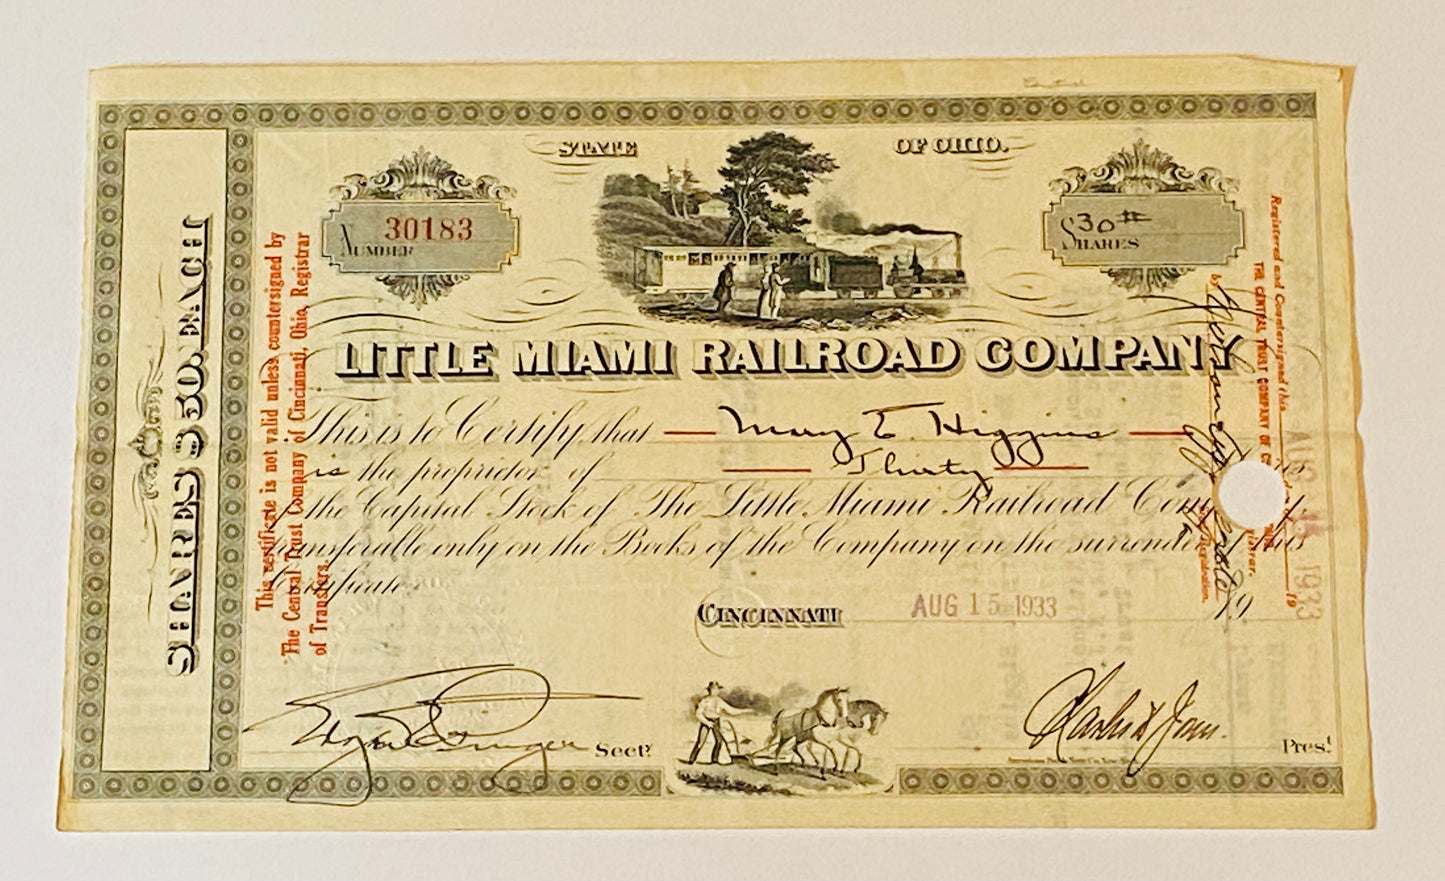 STATE OF OHIO.
NUMBER 30183
30 SHARES
LITTLE MIAMI RAILROAD COMPANY
This is to Certify that Mary E. Higgins
is the proprietor of Thirty Shares
of the Capital Stock of The Little Miami Railroad Company
transferable only on the Books of the Company on the surrender of this
Certificate.
CINCINNATI AUG 15 1933 19
Sect.
Prest.
SHARES $50. EACH
This certificate is not valid unless countersigned by
The Central Trust Company of Cincinnati, Ohio, Registrar
of Transfers.
Registered and Countersigned this
AUG 1933 19
THE CENTRAL TRUST COMPANY OF
by